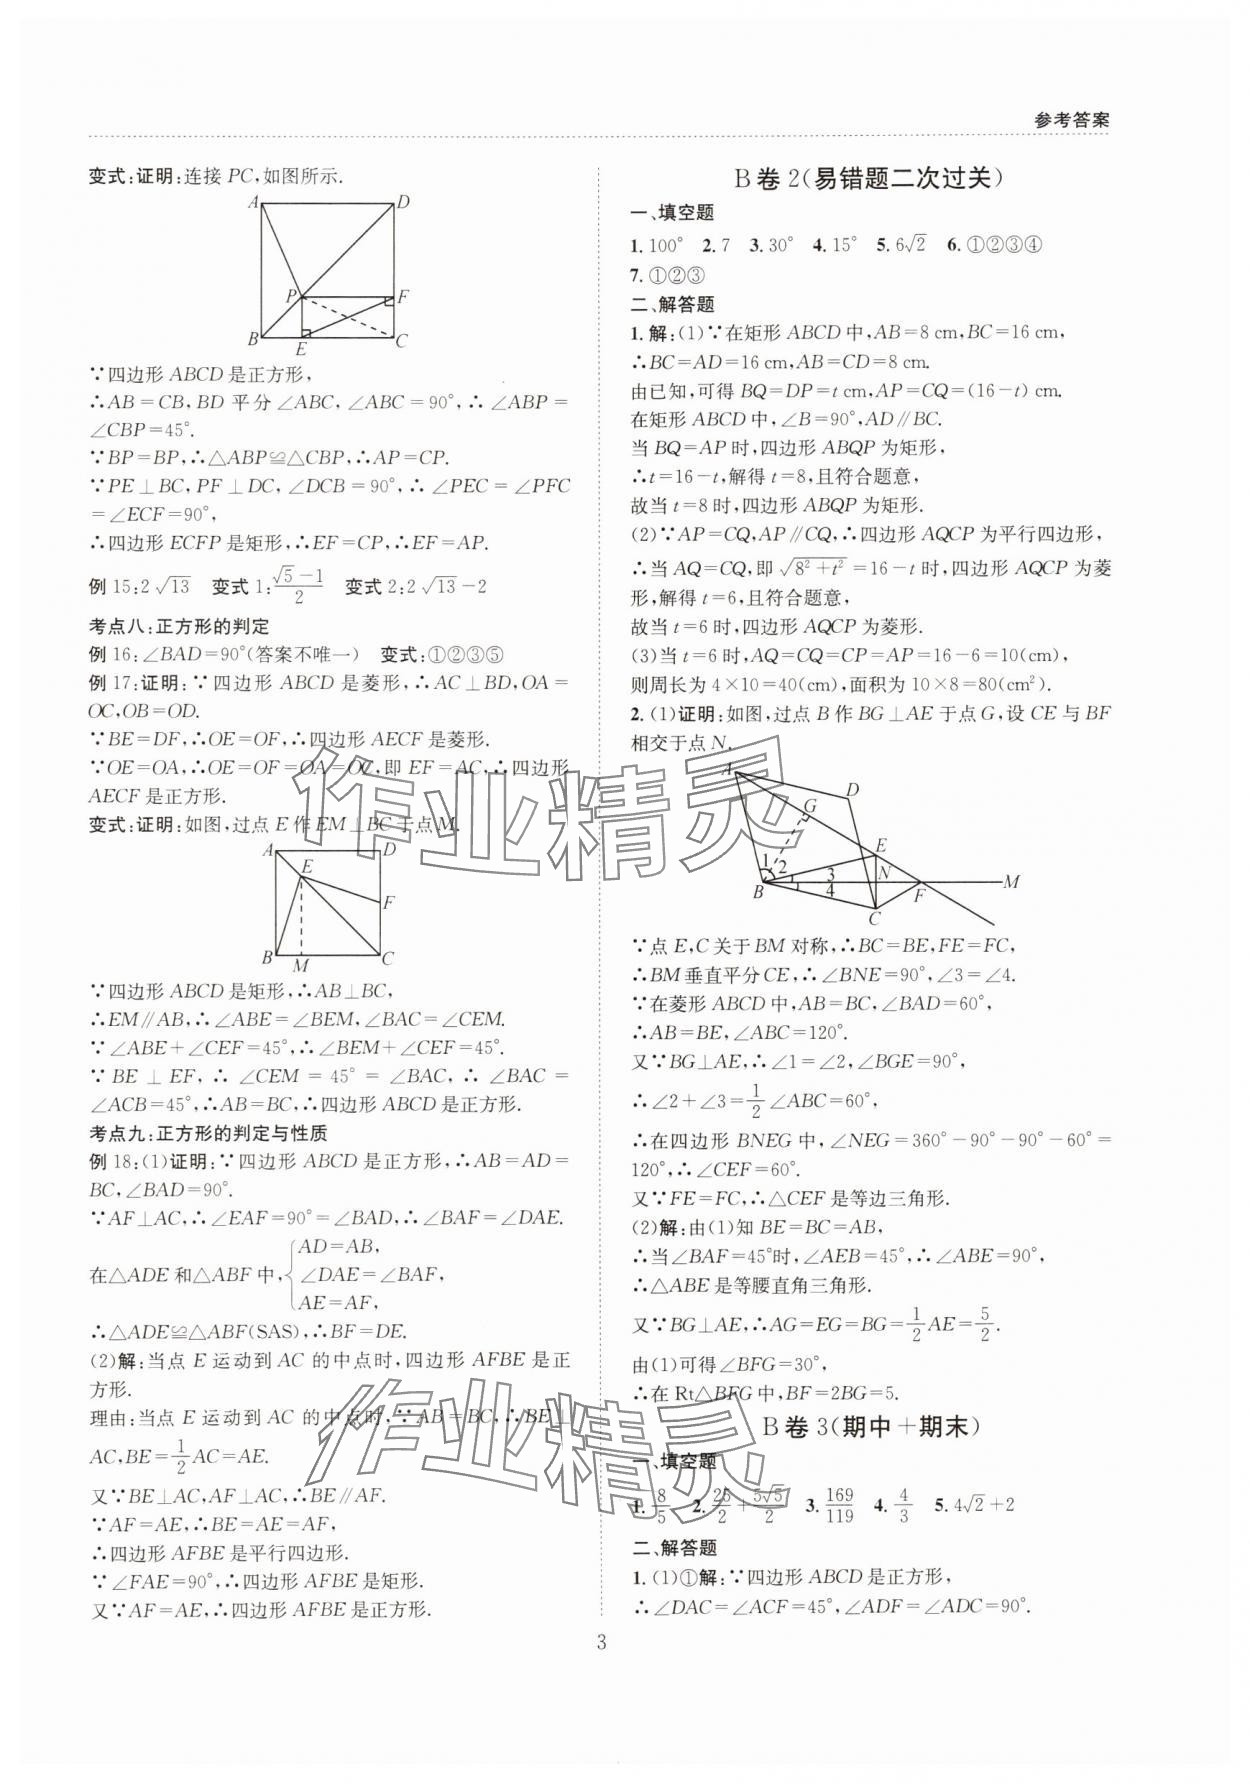 参考答案
变式:证明:连接 PC,如图所示.
A D
P F
B E C
∵四边形 ABCD 是正方形,
∴AB=CB,BD 平分∠ABC,∠ABC=90°,∴∠ABP=
∠CBP=45°.
∵BP=BP,∴△ABP≌△CBP,∴AP=CP.
∵PE⊥BC,PF⊥DC,∠DCB=90°,∴∠PEC=∠PFC
=∠ECF=90°,
∴四边形 ECFP 是矩形,∴EF=CP,∴EF=AP.
例 15:2√13 变式 1:(√5-1)/2 变式 2:2√13-2
考点八:正方形的判定
例 16:∠BAD=90°(答案不唯一) 变式:①②③⑤
例 17:证明:∵四边形 ABCD 是菱形,∴AC⊥BD,OA=
OC,OB=OD.
∵BE=DF,∴OE=OF,∴四边形 AECF 是菱形.
∵OE=OA,∴OE=OF=OA=OC,即 EF=AC,∴四边形
AECF 是正方形.
变式:证明:如图,过点 E 作 EM⊥BC 于点 M.
A D
E
F
B M C
∵四边形 ABCD 是矩形,∴AB⊥BC,
∴EM∥AB,∴∠ABE=∠BEM,∠BAC=∠CEM.
∵∠ABE+∠CEF=45°,∴∠BEM+∠CEF=45°.
∵BE⊥EF,∴∠CEM=45°=∠BAC,∴∠BAC=
∠ACB=45°,∴AB=BC,∴四边形 ABCD 是正方形.
考点九:正方形的判定与性质
例 18:(1)证明:∵四边形 ABCD 是正方形,∴AB=AD=
BC,∠BAD=90°.
∵AF⊥AC,∴∠EAF=90°=∠BAD,∴∠BAF=∠DAE.
在△ADE 和△ABF 中,{AD=AB,
∠DAE=∠BAF,
AE=AF,
∴△ADE≌△ABF(SAS),∴BF=DE.
(2)解:当点 E 运动到 AC 的中点时,四边形 AFBE 是正
方形.
理由:当点 E 运动到 AC 的中点时,∵AB=BC,∴BE⊥
AC,BE=1/2AC=AE.
又∵BE⊥AC,AF⊥AC,∴BE∥AF.
∵AF=AE,∴BE=AE=AF,
∴四边形 AFBE 是平行四边形.
∵∠FAE=90°,∴四边形 AFBE 是矩形.
又∵AF=AE,∴四边形 AFBE 是正方形.
B 卷 2(易错题二次过关)
一、填空题
1.100° 2.7 3.30° 4.15° 5.6√2 6.①②③④
7.①②③
二、解答题
1.解:(1)∵在矩形 ABCD 中,AB=8 cm,BC=16 cm,
∴BC=AD=16 cm,AB=CD=8 cm.
由已知,可得 BQ=DP=t cm,AP=CQ=(16-t) cm.
在矩形 ABCD 中,∠B=90°,AD∥BC.
当 BQ=AP 时,四边形 ABQP 为矩形,
∴t=16-t,解得 t=8,且符合题意,
故当 t=8 时,四边形 ABQP 为矩形.
(2)∵AP=CQ,AP∥CQ,∴四边形 AQCP 为平行四边形,
∴当 AQ=CQ,即 √(8²+t²)=16-t 时,四边形 AQCP 为菱
形,解得 t=6,且符合题意,
故当 t=6 时,四边形 AQCP 为菱形.
(3)当 t=6 时,AQ=CQ=CP=AP=16-6=10(cm),
则周长为 4×10=40(cm),面积为 10×8=80(cm²).
2.(1)证明:如图,过点 B 作 BG⊥AE 于点 G,设 CE 与 BF
相交于点 N.
A
D
G
E
1 2 3 N
B 4 F M
C
∵点 E,C 关于 BM 对称,∴BC=BE,FE=FC,
∴BM 垂直平分 CE,∴∠BNE=90°,∠3=∠4.
∵在菱形 ABCD 中,AB=BC,∠BAD=60°,
∴AB=BE,∠ABC=120°.
又∵BG⊥AE,∴∠1=∠2,∠BGE=90°,
∴∠2+∠3=1/2∠ABC=60°,
∴在四边形 BNEG 中,∠NEG=360°-90°-90°-60°=
120°,∴∠CEF=60°.
又∵FE=FC,∴△CEF 是等边三角形.
(2)解:由(1)知 BE=BC=AB,
∴当∠BAF=45°时,∠AEB=45°,∴∠ABE=90°,
∴△ABE 是等腰直角三角形.
又∵BG⊥AE,∴AG=EG=BG=1/2AE=5/2.
由(1)可得∠BFG=30°,
∴在 Rt△BFG 中,BF=2BG=5.
B 卷 3(期中+期末)
一、填空题
1.8/5 2.25/2+5√5/2 3.169/119 4.4/3 5.4√2+2
二、解答题
1.(1)①解:∵四边形 ABCD 是正方形,
∴∠DAC=∠ACF=45°,∠ADF=∠ADC=90°.
3
作业精灵
作业精灵